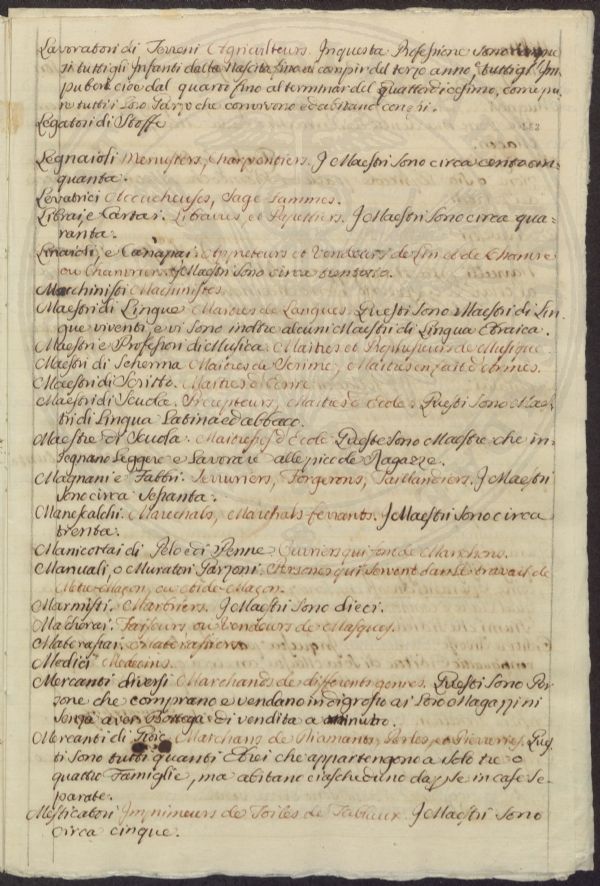 Lavoratori di Terreni Agriculteurs. In questa Professione sono
si tutti gli Infanti dalla Nascita fino al compir del terzo anno, e tutti gl'Im-
puberi cioè dal quarto fino al terminar del quattordicesimo, com'a pu-
re tutti i loro Garzo che convivono ed abitano con essi.
Legatori di Stoffe
Legnaioli Menusiers, Charpentiers. I Maestri sono circa cento cin-
quanta.
Levatrici Accoucheuses, Sage fammes.
Librai e Cartai. Libraires et Papettiers. I Maestri sono circa qua-
ranta.
Linaioli, e Canapai. Appreteurs et Vendeurs de Lin et de Chanvre
ou Chanvriers. I Maestri sono circa
Macchinisti Machinistes.
Maestri di Lingue Maitres de Langues. Questi sono Maestri di Lin-
gue viventi, e vi sono inoltre alcuni Maestri di Lingua Ebraica.
Maestri e Professori di Musica. Maitres et Professeurs de Musique.
Maestri di Scherma Maitres de Scrime, Maitres en fait d'Armes.
Maestri di Scritto. Maitres d'Ecrire.
Maestri di Scuola. Precepteurs, Maitres d'Ecole. Questi sono Maes-
tri di Lingua Latina ed abbaco.
Maestre di Scuola. Maitresses d'Ecole Queste sono Maestre che in-
segnano Leggere e Lavorare alle piccole Ragazze.
Magnani e Fabbri. Serruriers, Forgerons, Taillandiers. I Maestri
sono circa sessanta.
Maniscalchi. Marechals, Marchals ferrants. I Maestri sono circa
trenta.
Manicottai di Pelo e di Penne Ouvriers qui font de Manchons.
Manuali, o Muratori Garzoni. Personnes qui servent dans le travail de
Metu-Maçon, ou Aide-Maçon.
Marmisti. Marbriers. I Maestri sono dieci.
Mascherai. Faiseurs ou Vendeurs de Masques.
Materassai. Materassiers
Medici Medecins.
Mercanti diversi Marchands de differents genres. Questi sono Per-
sone che comprano e vendano in digrosso ai loro Magazzini
senza aver Bottega di vendita a minuto.
Mercanti di Gioie Marchans de Diamants, Perles, et Pierreries. Ques-
ti sono tutti quanti Ebrei che appartengono a solo tre o
quattro Famiglie, ma abitano ciascheduno da per se in case se-
parate.
Mesticatori Imprimeurs de Toiles de Tableaux. I Maestri sono
circa cinque.